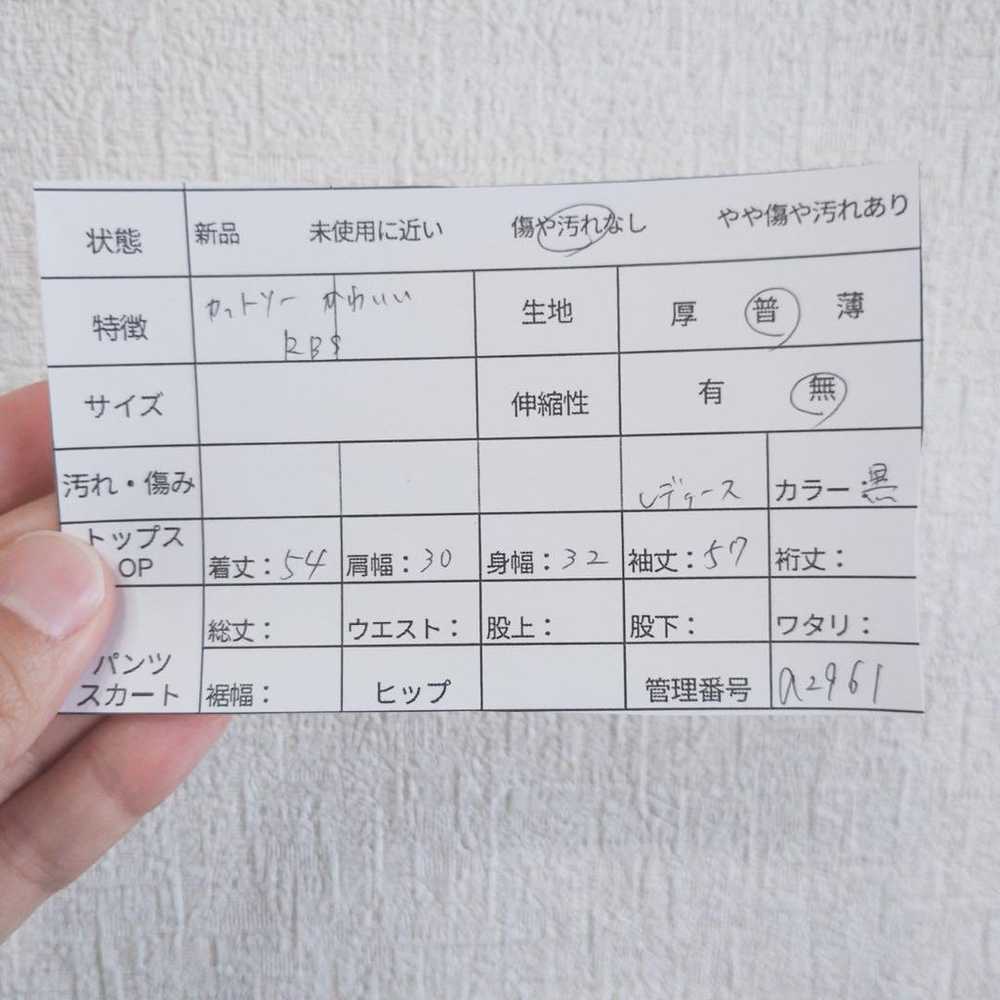 状態 新品 未使用に近い 傷や汚れなし やや傷や汚れあり
特徴 カットソー かわいい 生地 厚 普 薄
サイズ 伸縮性 有 無
汚れ・傷み レディース カラー 黒
トップス
OP 着丈：54 肩幅：30 身幅：32 袖丈：57 裄丈：
総丈： ウエスト： 股上： 股下： ワタリ：
パンツ
スカート 裾幅： ヒップ 管理番号 a2961